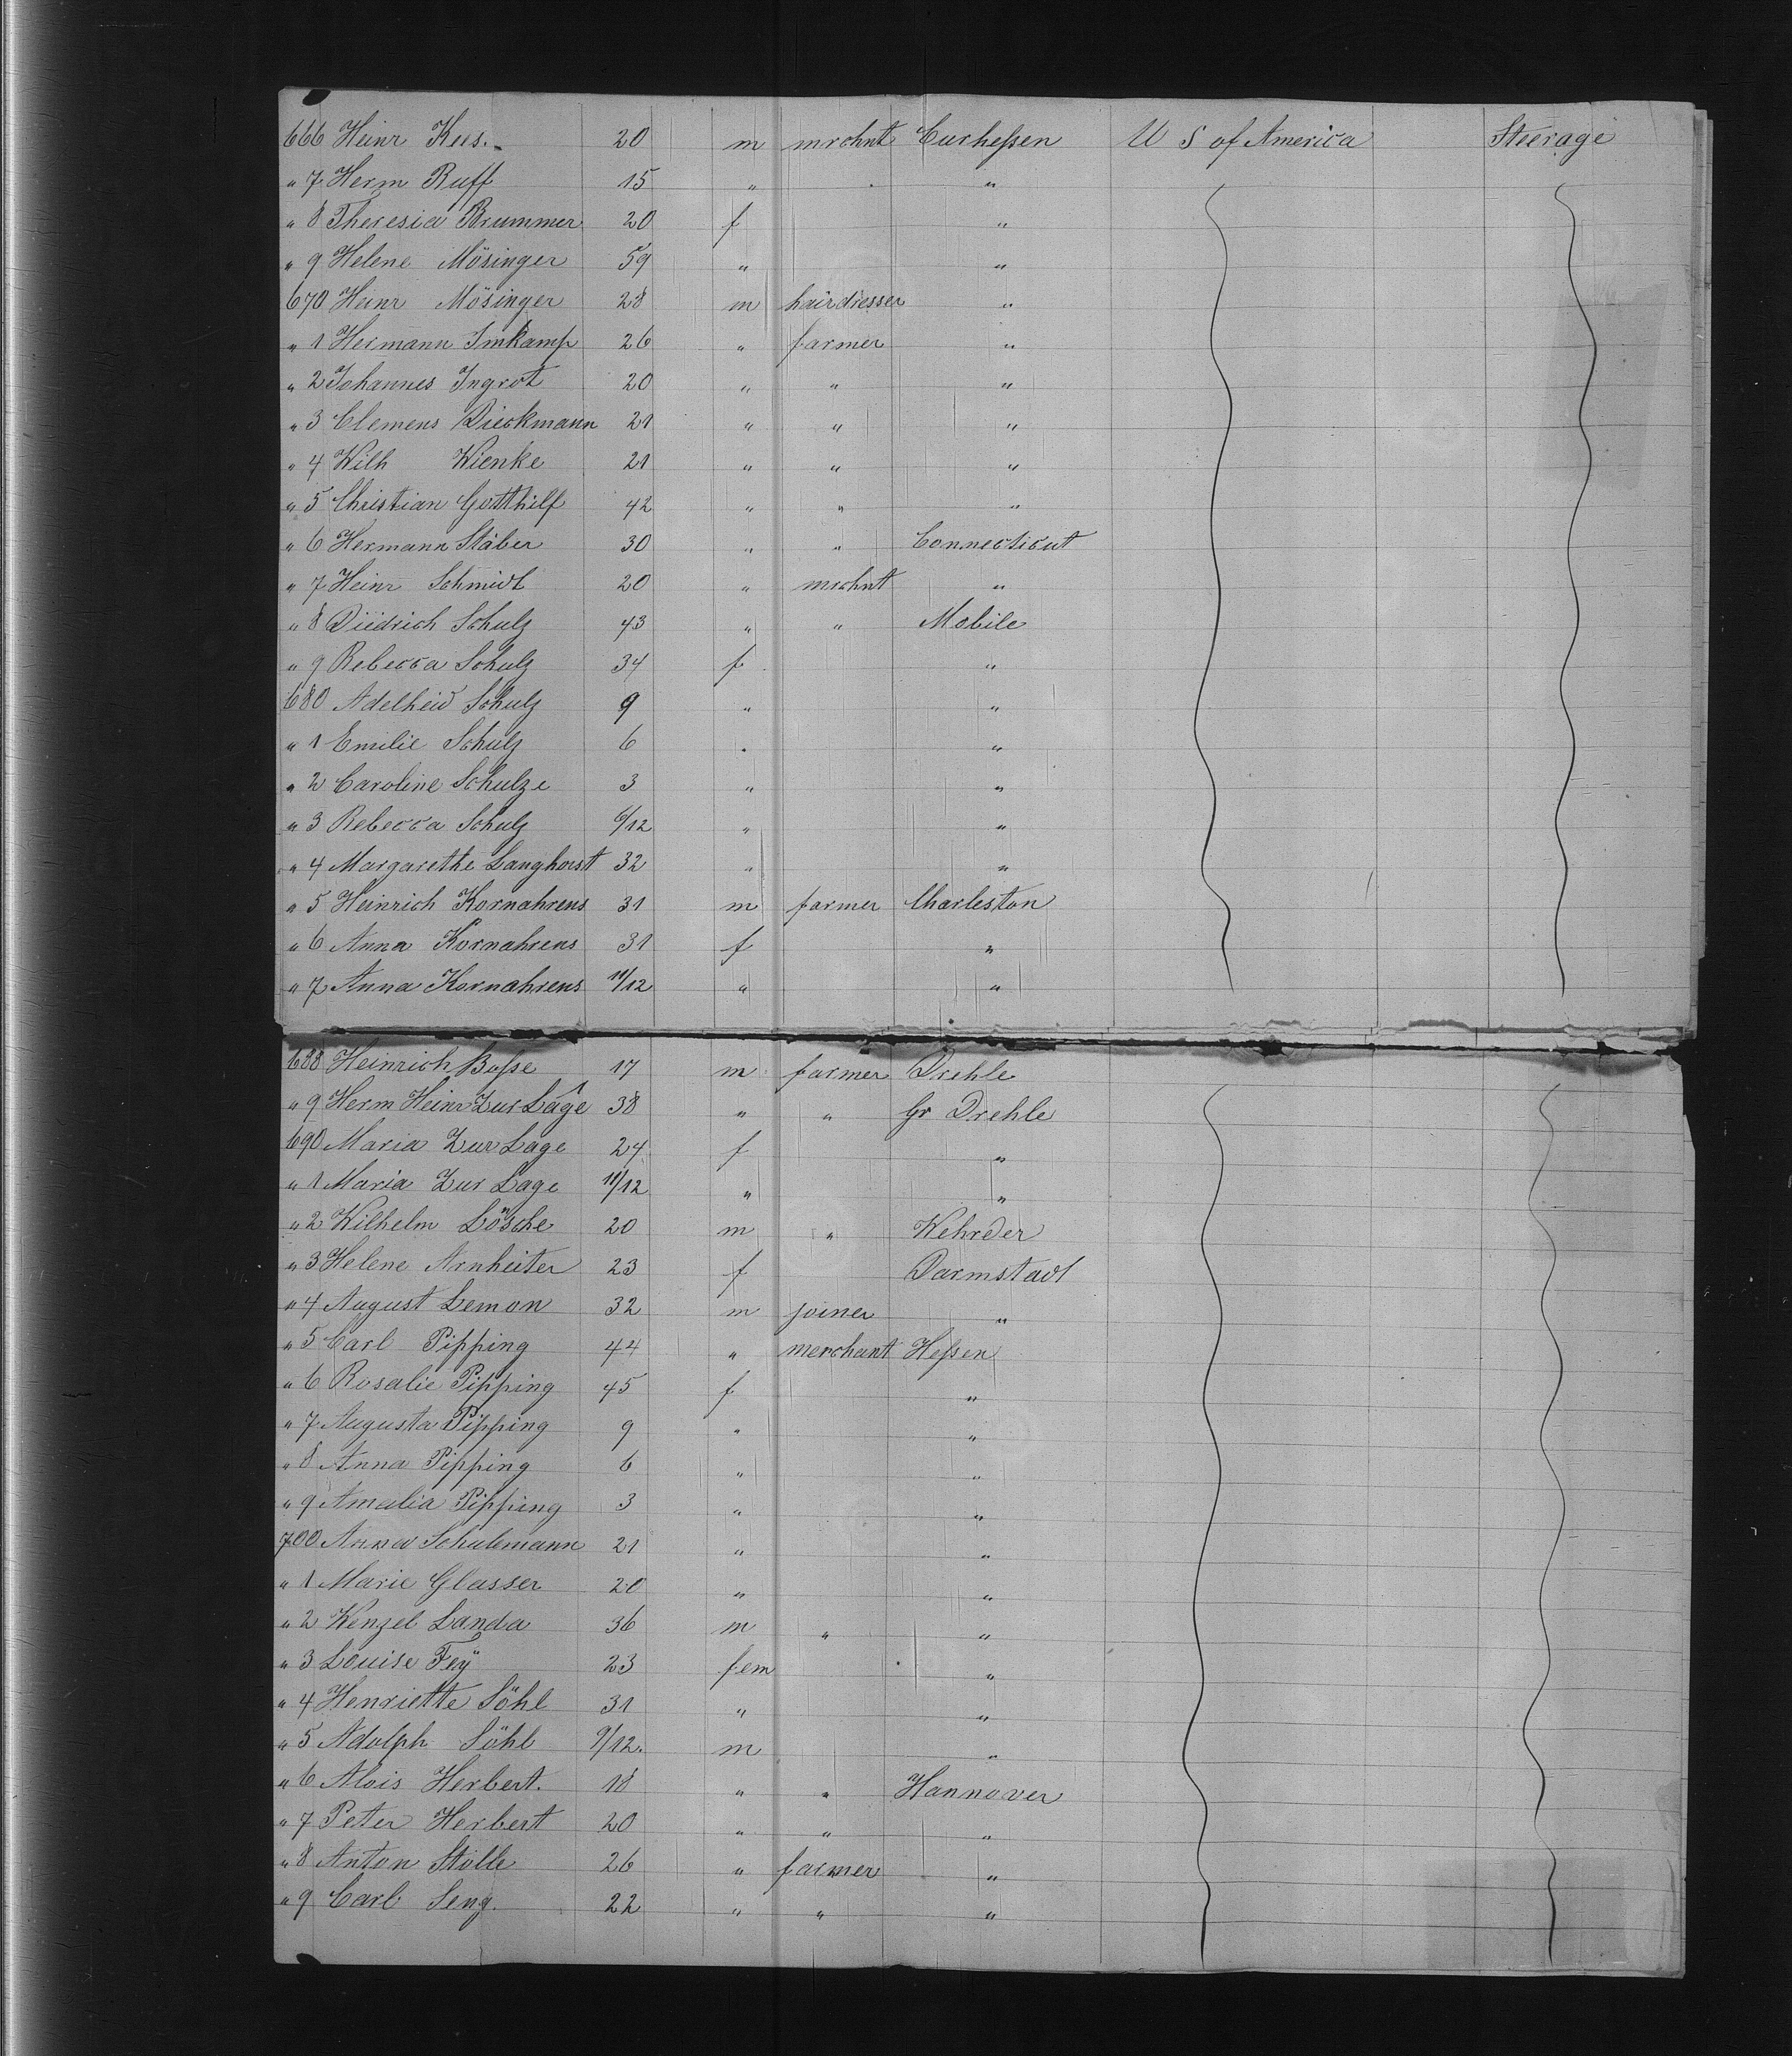 666 Heinr Kees. 20 m mrchnt Curhessen U S of America Steerage
" 7 Herm Ruff 15 " "
" 8 Theresia Brummer 20 f "
" 9 Helene Mösinger 59 " "
670 Heinr Mösinger 28 m hairdresser "
" 1 Hermann Imkamp 26 " farmer "
" 2 Johannes Ingrot 20 " " "
" 3 Clemens Dieckmann 21 " " "
" 4 Wilh Wienke 21 " " "
" 5 Christian Gotthilf 42 " " "
" 6 Hermann Stäber 30 " " Connecticut
" 7 Heinr Schmidt 20 " mrchnt "
" 8 Diedrich Schulz 43 " " Mobile
" 9 Rebecca Schulz 34 f "
680 Adelheid Schulz 9 " "
" 1 Emilie Schulz 6 " "
" 2 Caroline Schulze 3 " "
" 3 Rebecca Schulz 6/12 " "
" 4 Margarethe Langhorst 32 " "
" 5 Heinrich Kornahrens 31 m farmer Charleston
" 6 Anna Kornahrens 31 f "
" 7 Anna Kornahrens 11/12 " "
688 Heinrich Bosse 17 m farmer Drehle
" 9 Herm Heinr Zur Lage 38 " " Gr Drehle
690 Maria Zur Lage 24 f "
" 1 Maria Zur Lage 11/12 " "
" 2 Wilhelm Lösche 20 m " Wehrder
" 3 Helene Arnheiter 23 f Darmstadt
" 4 August Lemon 32 m joiner "
" 5 Carl Pipping 44 " merchant Hessen
" 6 Rosalie Pipping 45 f "
" 7 Augusta Pipping 9 " "
" 8 Anna Pipping 6 " "
" 9 Amalia Pipping 3 " "
700 Anna Schulemann 21 " "
" 1 Marie Glasser 20 " "
" 2 Wenzel Landa 36 m " "
" 3 Louise Feÿ 23 fem "
" 4 Henriette Söhl 31 " "
" 5 Adolph Söhl 9/12. m "
" 6 Alois Herbert. 18 " " Hannover
" 7 Peter Herbert 20 " " "
" 8 Anton Stolle 26 " farmer "
" 9 Carl Seng. 22 " " "